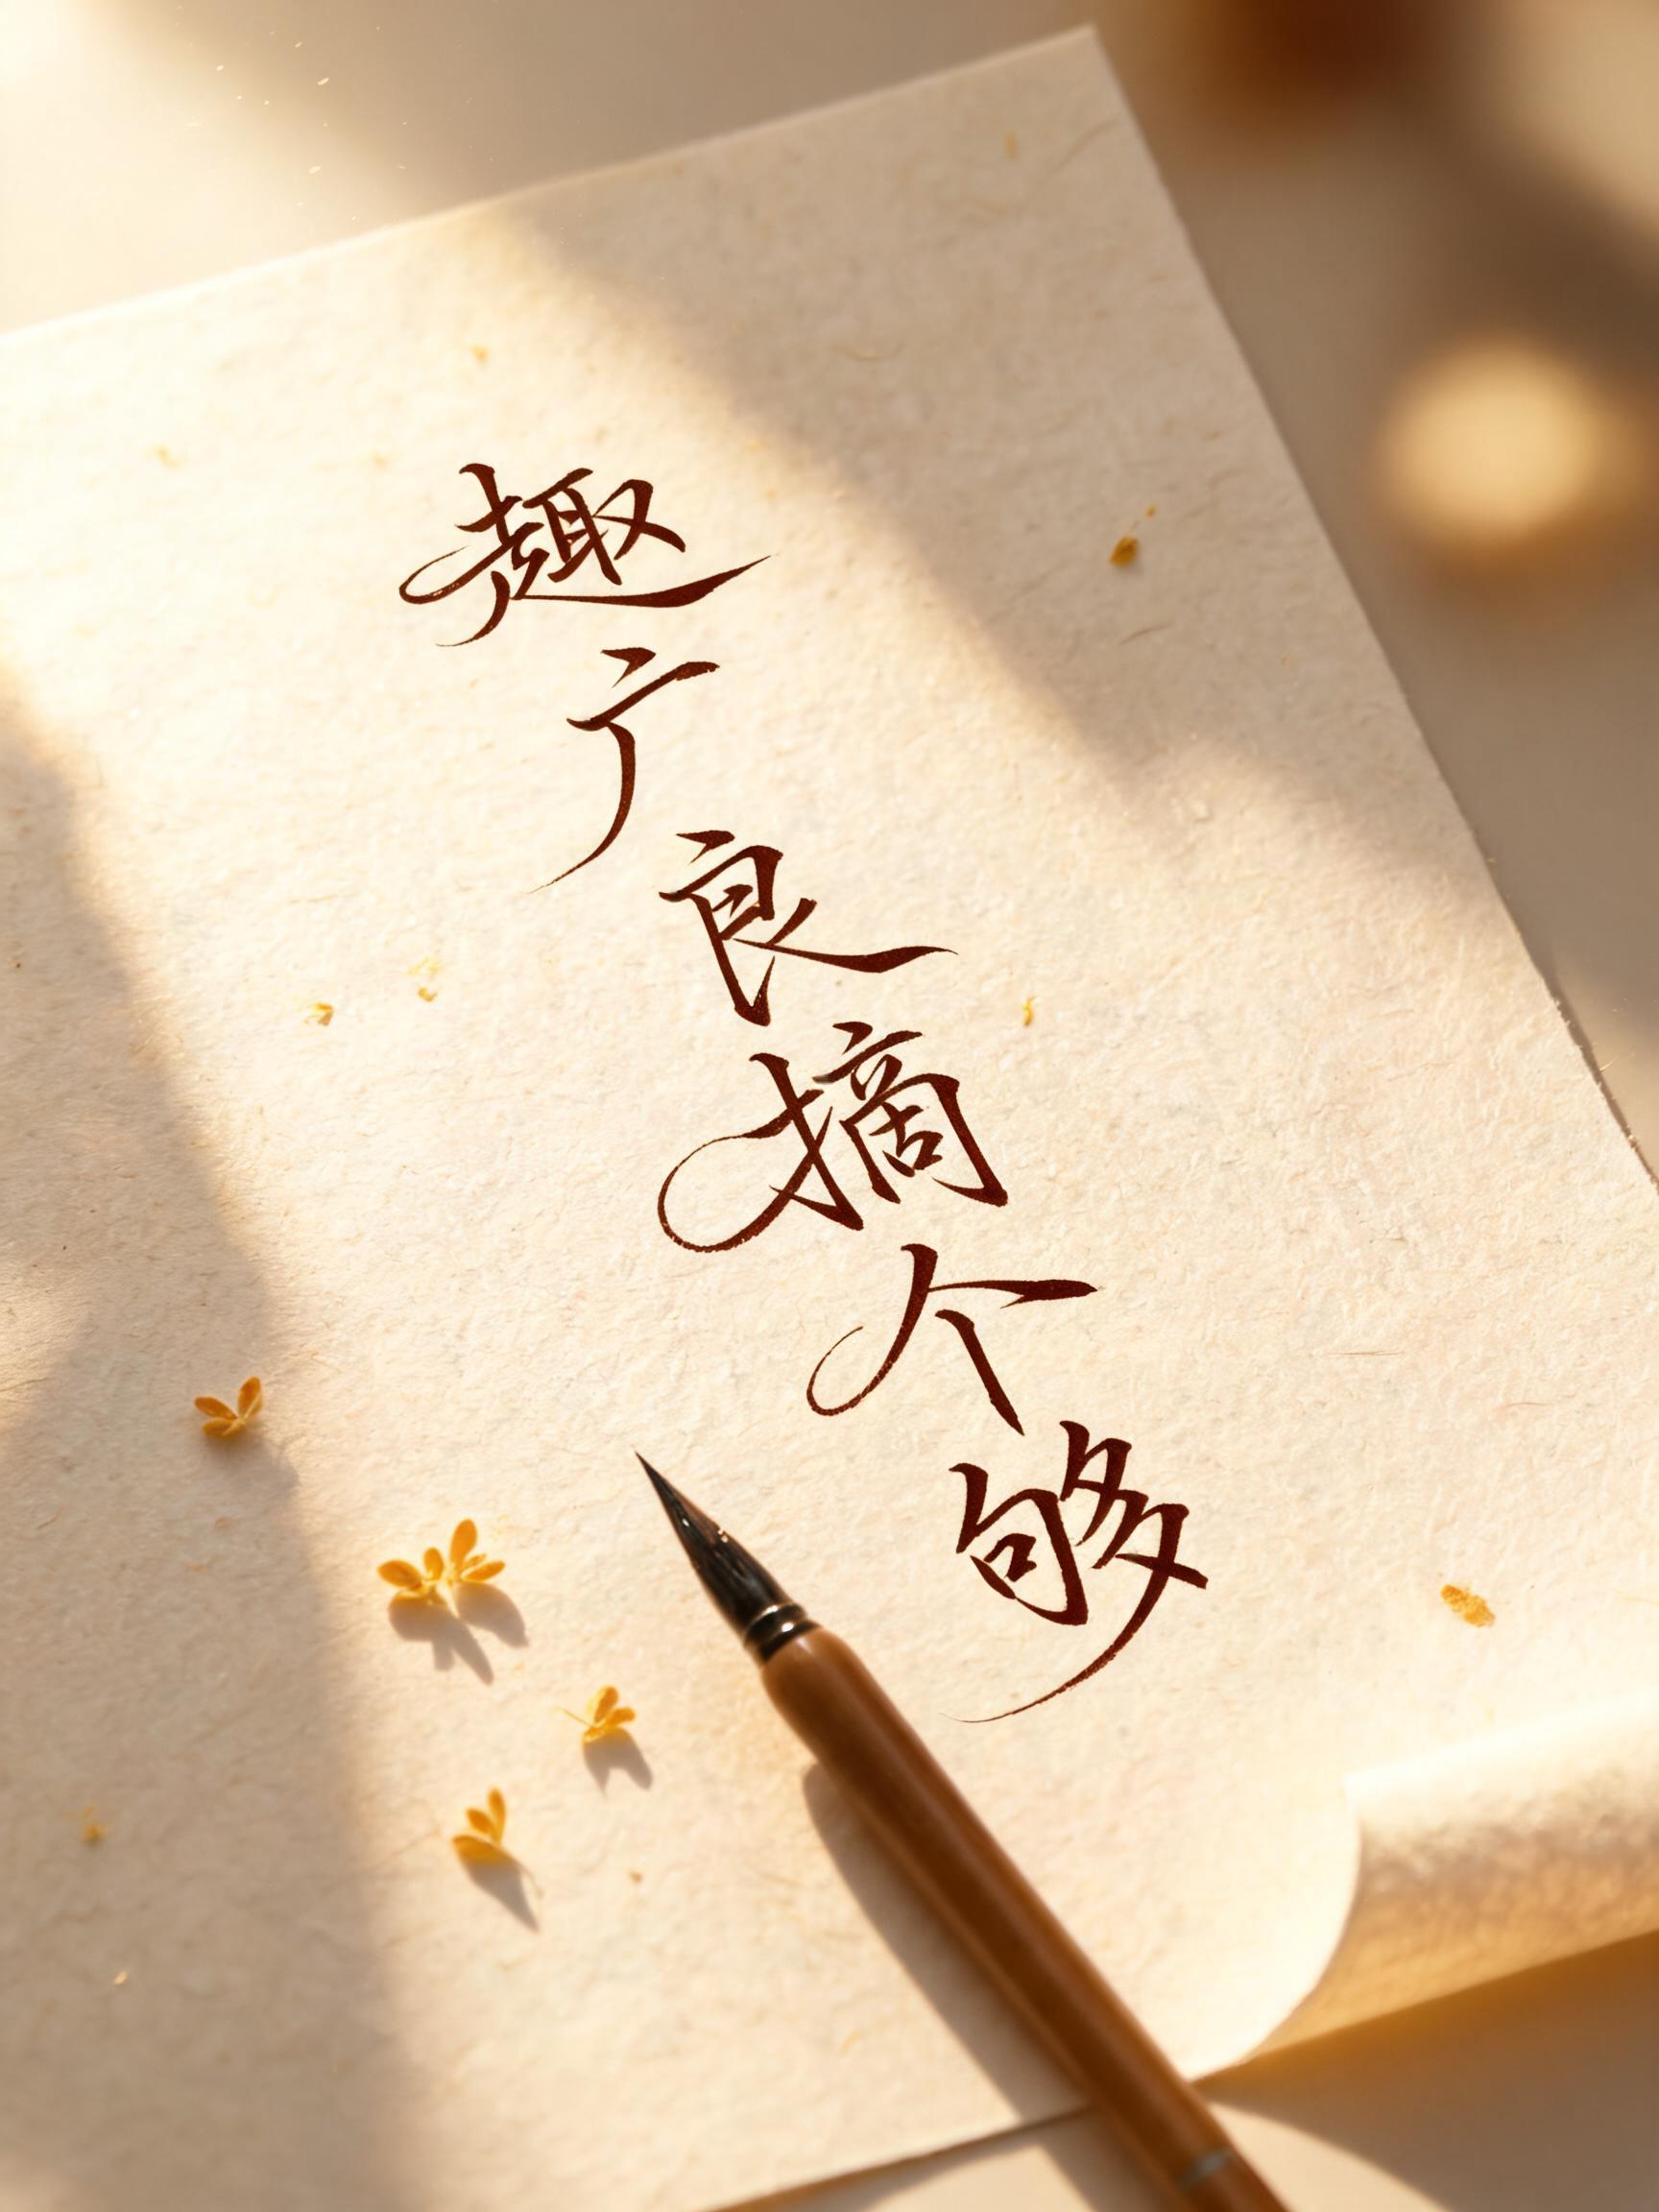 趣广良摘个够